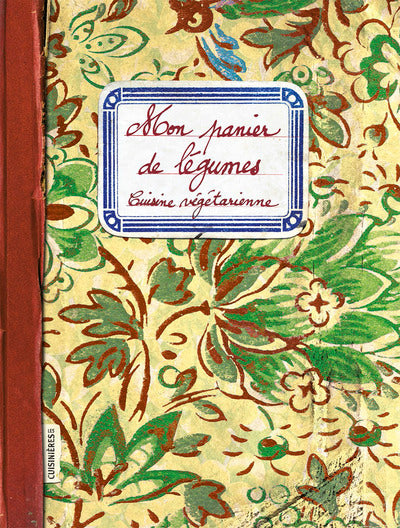 Mon panier
de légumes
Cuisine végétarienne
CUISINIÈRES